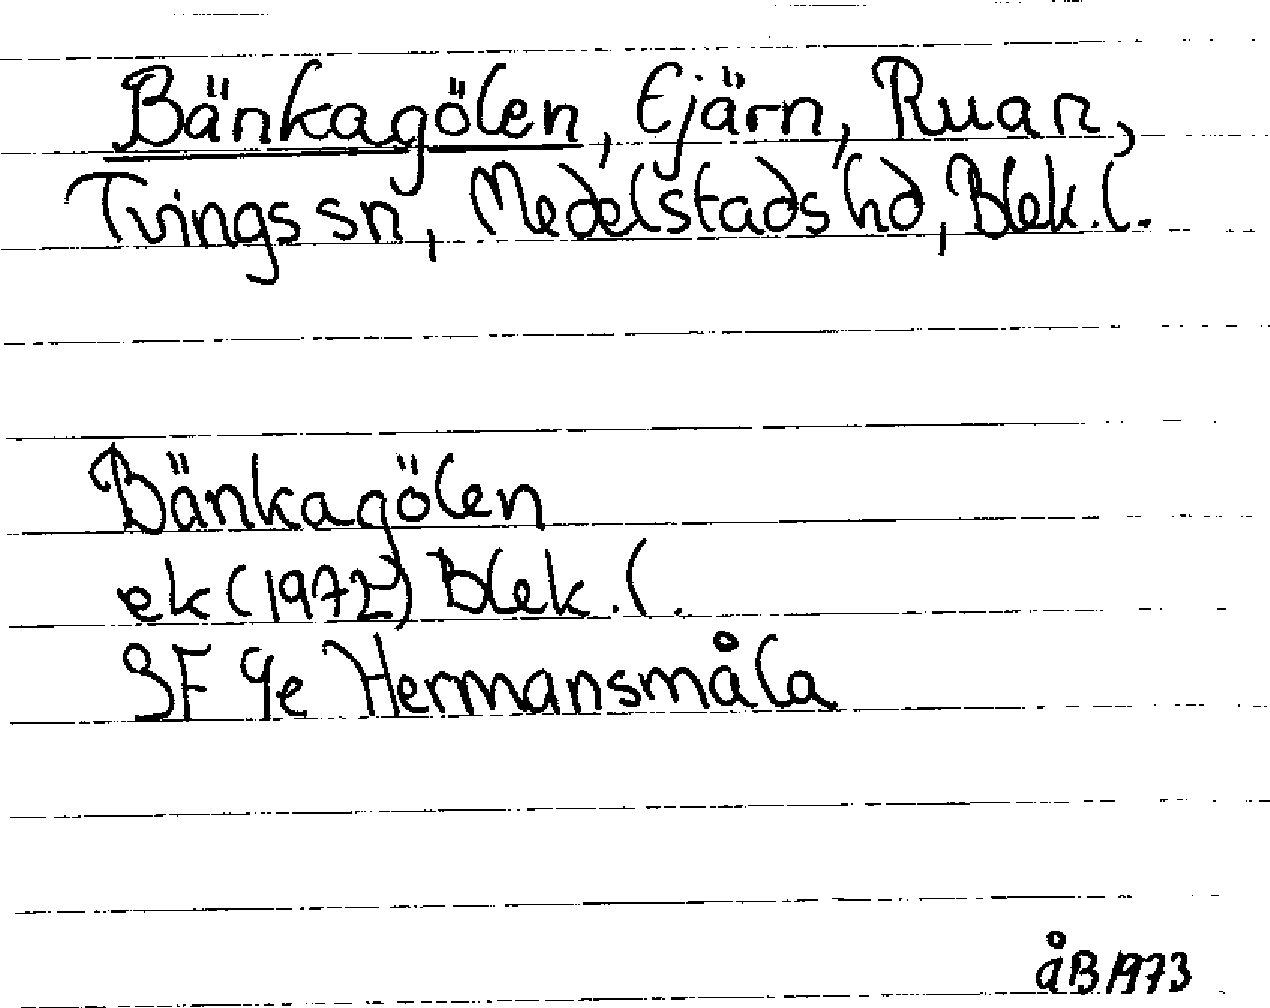 Bänkagölen, tjärn, Ruan,
Tvings sn, Medelstads hd, Blek. l.
Bänkagölen
ek (1972) Blek. l.
3F 9e Hermansmåla
åB 1973